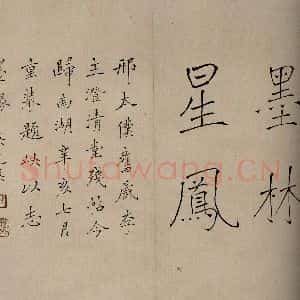 墨林
星鳳
邢太僕舊藏李
主澄清堂殘帖今
歸南湖辛亥七月
重裝題帙以志
墨緣
Shufawang.CN